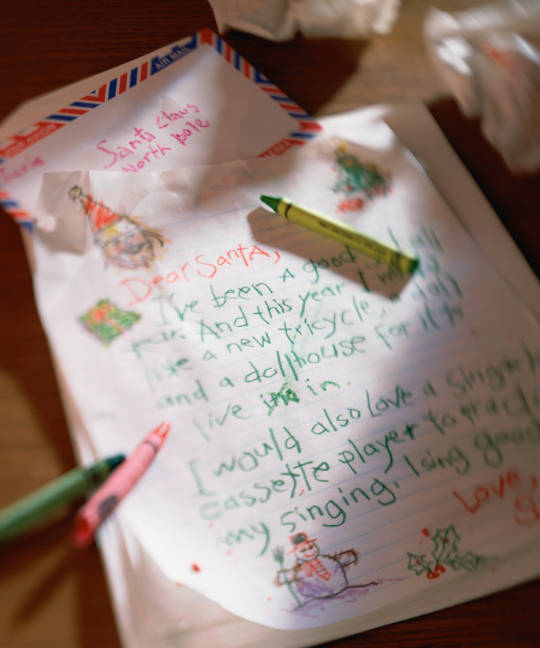 AIR MAIL
Santa Claus
North Pole
Dear Santa,
I've been a good all
year. And this year I would
like a new tricycle, a doll
and a dollhouse for it to
live in.
I would also love a singalo
cassette player to practice
my singing. I sing good
Love,